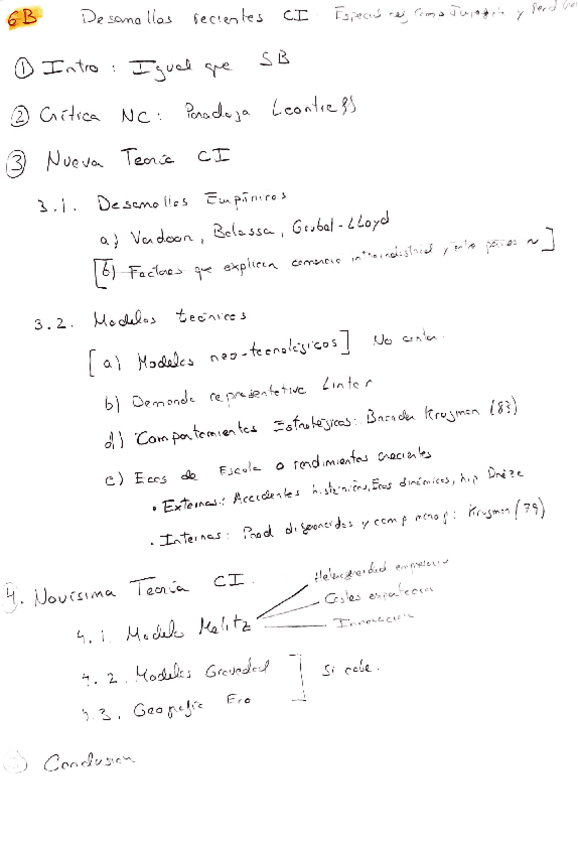 6B Desarrollos recientes CI
① Intro: Igual que 5B
② Crítica NC: Paradoja Leontieff
③ Nueva Teoría CI
3.1. Desarrollos Empíricos
a) Verdoon, Balassa, Grubel-LLoyd
[b) Factores que explican comercio intraindustrial y entre países ~]
3.2. Modelos teóricos
[a) Modelos neo-tecnológicos] No cantar
b) Demanda representativa Linder
d) Comportamientos Estratégicos: Barnder Krugman (83)
c) Ecos de Escala o rendimientos crecientes
• Externas: Accidentes históricos, Ecos dinámicos, hip Drèze
• Internas: Prod diferenciados y comp monop: Krugman (79)
4. Novísima Teoría CI.
4.1. Modelo Melitz
Heterogeneidad empresarial
Costes exportación
Innovación
4.2. Modelos Gravedad
4.3. Geografía Eco
Si cabe.
Conclusion